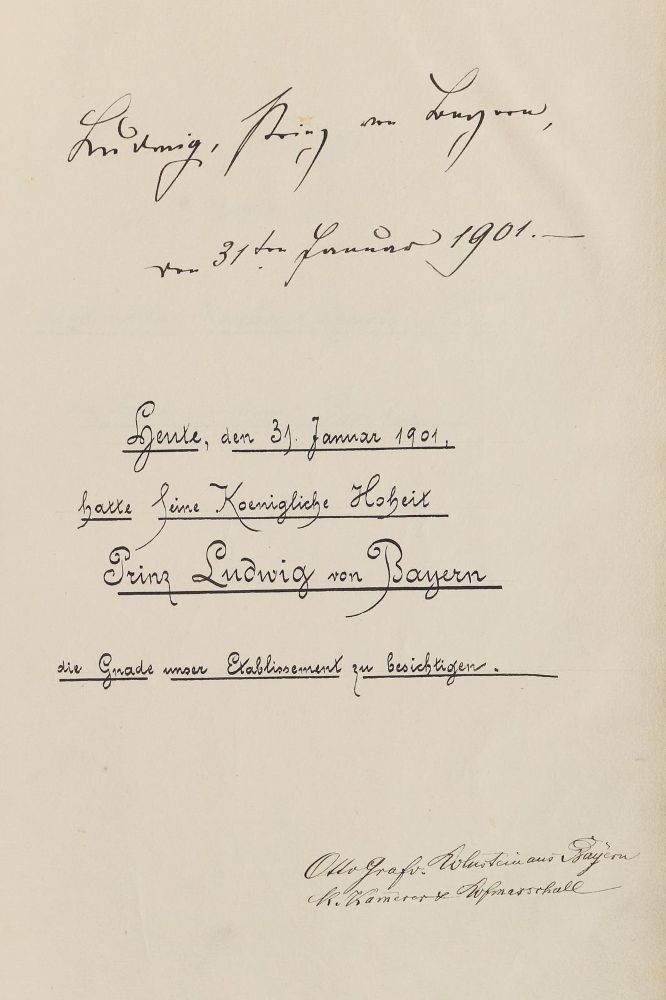 Ludwig, Prinz von Bayern,
den 31ten Januar 1901. —
Heute, den 31. Januar 1901,
hatte seine Koenigliche Hoheit
Prinz Ludwig von Bayern
die Gnade unser Etablissement zu besichtigen.
Otto Graf v. Holnstein aus Bayern
K. Kämerer & Hofmarschall